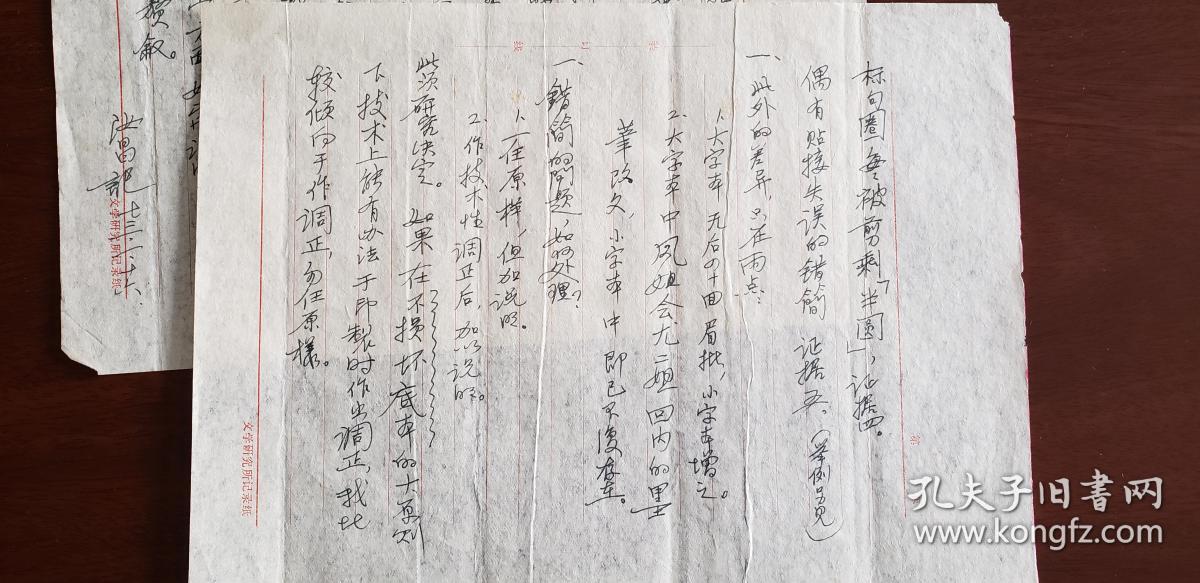 标句圈每被剪剩「半圆」，证据四。
偶有贴接失误的错简 证据五、（举例另见）
一、此外的差异，只在两点：
1、大字本无后四十回眉批，小字本增之。
2、大字本中凤姐会尤二姐回内的墨
笔改文，小字本中即已不复存在。
一、错简的问题如何处理？
1、一任原样，但加说明。
2、作技术性调正后，加以说明。
此须研究决定。如果在不损坏底本的大原则
下技术上能有办法于印製时作出调正，我比
较倾向于作调正，勿任原樣。
文学研究所记录纸
装订线
第
赘叙。
汝昌 记 七三、二、十六、
文学研究所记录纸
孔夫子旧书网
www.kongfz.com